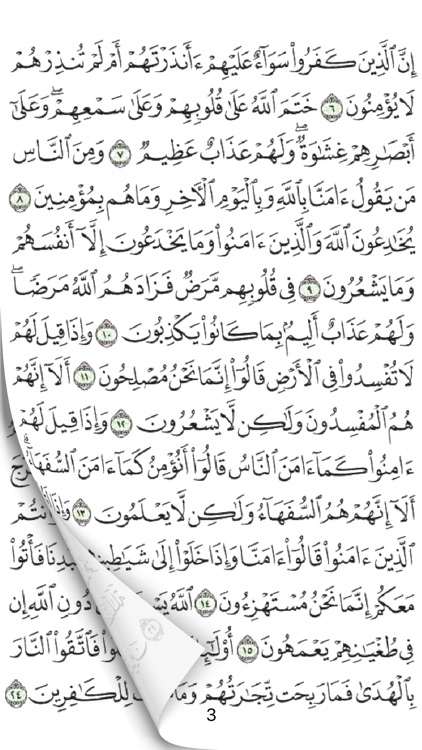 إِنَّ ٱلَّذِينَ كَفَرُوا۟ سَوَآءٌ عَلَيْهِمْ ءَأَنذَرْتَهُمْ أَمْ لَمْ تُنذِرْهُمْ
لَا يُؤْمِنُونَ ٦ خَتَمَ ٱللَّهُ عَلَىٰ قُلُوبِهِمْ وَعَلَىٰ سَمْعِهِمْ ۖ وَعَلَىٰٓ
أَبْصَٰرِهِمْ غِشَٰوَةٌ ۖ وَلَهُمْ عَذَابٌ عَظِيمٌ ٧ وَمِنَ ٱلنَّاسِ
مَن يَقُولُ ءَامَنَّا بِٱللَّهِ وَبِٱلْيَوْمِ ٱلْـَٔاخِرِ وَمَا هُم بِمُؤْمِنِينَ ٨
يُخَٰدِعُونَ ٱللَّهَ وَٱلَّذِينَ ءَامَنُوا۟ وَمَا يَخْدَعُونَ إِلَّآ أَنفُسَهُمْ
وَمَا يَشْعُرُونَ ٩ فِى قُلُوبِهِم مَّرَضٌ فَزَادَهُمُ ٱللَّهُ مَرَضًا ۖ
وَلَهُمْ عَذَابٌ أَلِيمٌۢ بِمَا كَانُوا۟ يَكْذِبُونَ ١٠ وَإِذَا قِيلَ لَهُمْ
لَا تُفْسِدُوا۟ فِى ٱلْأَرْضِ قَالُوٓا۟ إِنَّمَا نَحْنُ مُصْلِحُونَ ١١ أَلَآ إِنَّهُمْ
هُمُ ٱلْمُفْسِدُونَ وَلَٰكِن لَّا يَشْعُرُونَ ١٢ وَإِذَا قِيلَ لَهُمْ
ءَامِنُوا۟ كَمَآ ءَامَنَ ٱلنَّاسُ قَالُوٓا۟ أَنُؤْمِنُ كَمَآ ءَامَنَ
أَلَآ إِنَّهُمْ هُمُ ٱلسُّفَهَآءُ وَلَٰكِن لَّا يَعْلَمُونَ ١٣
ٱلَّذِينَ ءَامَنُوا۟ قَالُوٓا۟ ءَامَنَّا وَإِذَا خَلَوْا۟ إِلَىٰ فَأْتُوا۟
مَعَكُمْ إِنَّمَا نَحْنُ مُسْتَهْزِءُونَ ١٤ ٱللَّهُ دُونِ ٱللَّهِ إِن
فِى طُغْيَٰنِهِمْ يَعْمَهُونَ ١٥ فَٱتَّقُوا۟ ٱلنَّارَ
بِٱلْهُدَىٰ فَمَا رَبِحَت تِّجَٰرَتُهُمْ لِلْكَٰفِرِينَ ٢٤
3